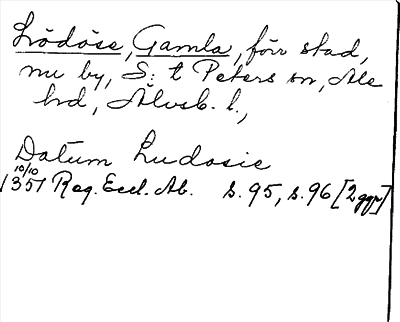 Lödöse, Gamla, förr stad,
nu by, S:t Peters sn, Ale
hrd, Älvsb. l.,
Datum Ludosie
10/10
1351 Reg. Eccl. Ab. s. 95, s. 96 [2 ggr]